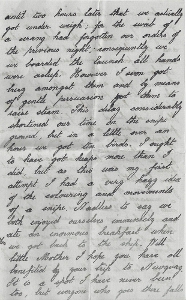 until two hours later that we actually
got under weigh, for the
had forgotten our orders of
the previous night, consequently we
we boarded the launch all hands
were asleep. However I soon got
busy amongst them and by means
of gentle persuasion got them to
raise steam. This delay considerably
shortened our time on the snipe
ground, but in a little over an
hour we got ten birds. I ought
to have got heaps more than I
did, but as this was my first
attempt I had a very hazy idea
of the colouring and movements
of a snipe. Needless to say we
both enjoyed ourselves immensely and
ate an enormous breakfast when
we got back to the ship. Well
little Mother I hope you have all
benefited by your trip to Norway
It is a spot I have never been
too, but anyone who goes there falls